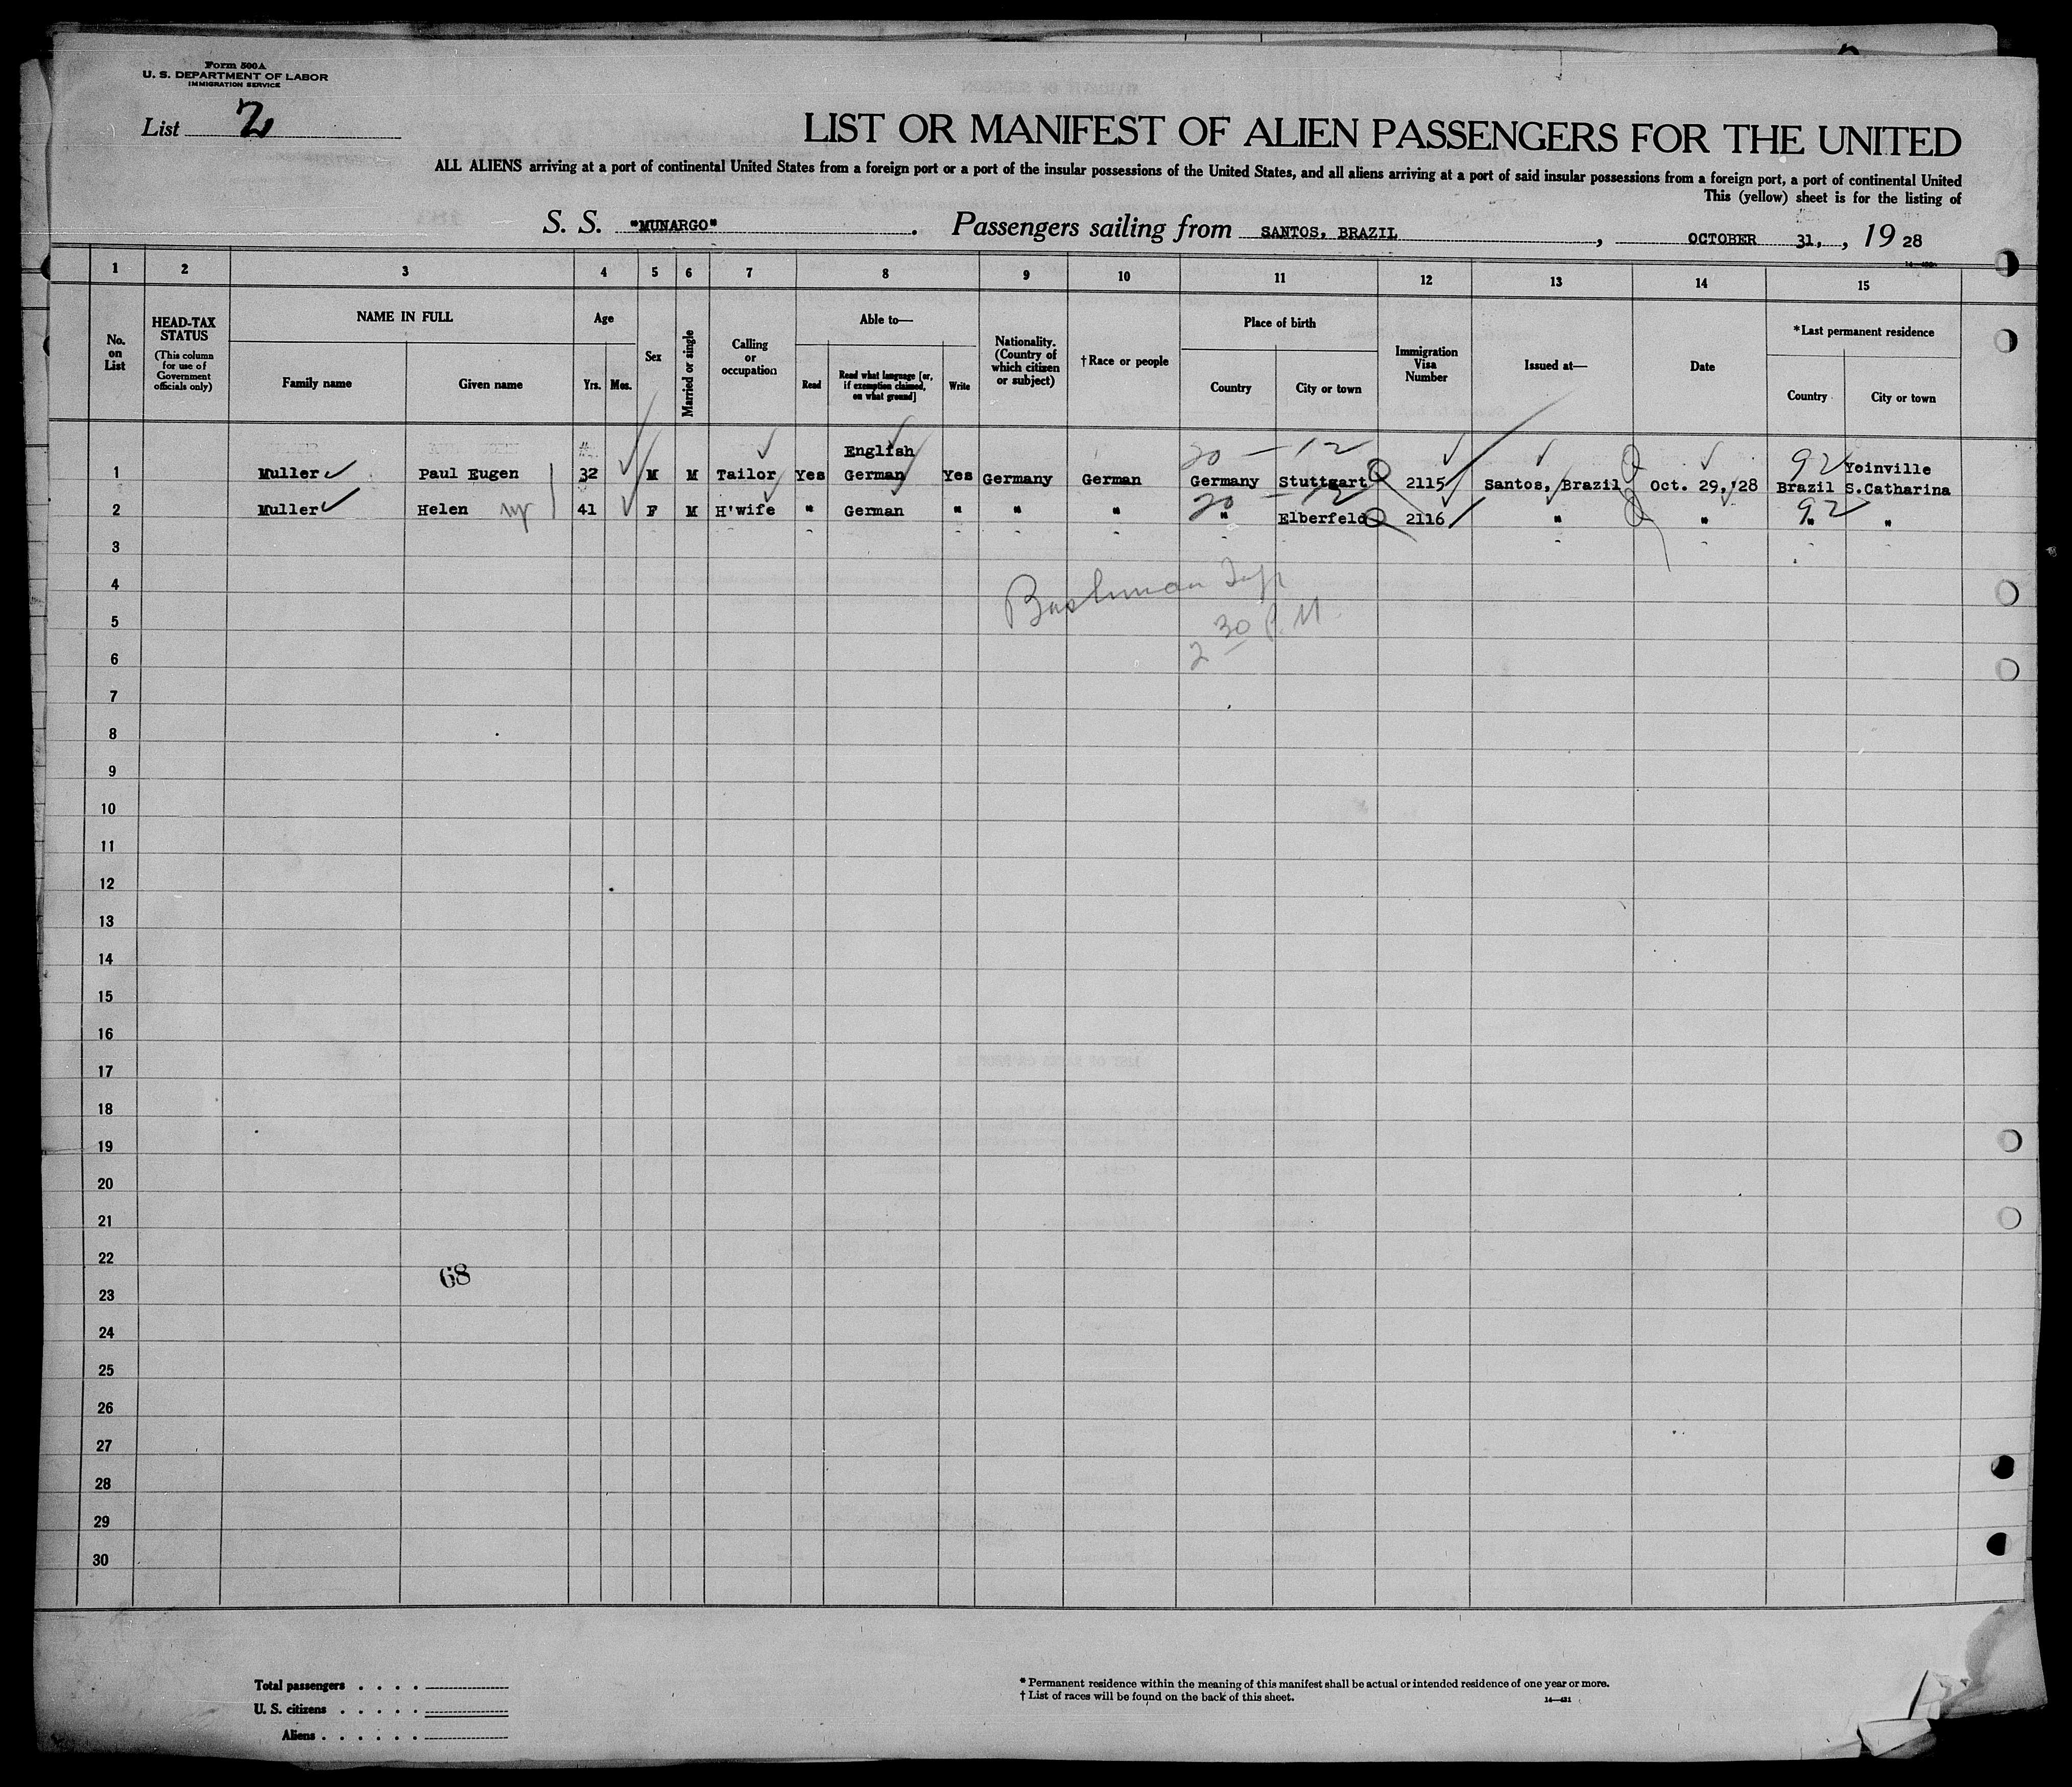 Form 500A
U. S. DEPARTMENT OF LABOR
IMMIGRATION SERVICE
List 2
LIST OR MANIFEST OF ALIEN PASSENGERS FOR THE UNITED
ALL ALIENS arriving at a port of continental United States from a foreign port or a port of the insular possessions of the United States, and all aliens arriving at a port of said insular possessions from a foreign port, a port of continental United
This (yellow) sheet is for the listing of
S. S. "MUNARGO". Passengers sailing from SANTOS, BRAZIL, OCTOBER 31, , 19 28
1 2 3 4 5 6 7 8 9 10 11 12 13 14 15
No. on List
HEAD-TAX STATUS
(This column for use of Government officials only)
NAME IN FULL
Family name
Given name
Age
Yrs.
Mos.
Sex
Married or single
Calling or occupation
Able to—
Read
Read what language [or, if exemption claimed, on what ground]
Write
Nationality. (Country of which citizen or subject)
†Race or people
Place of birth
Country
City or town
Immigration Visa Number
Issued at—
Date
*Last permanent residence
Country
City or town
20 – 12
92
1 Muller Paul Eugen 32 M M Tailor Yes English German Yes Germany German Germany Stuttgart 2115 Santos, Brazil Oct. 29,'28 Brazil Yoinville S.Catharina
20 – 12
92
2 Muller Helen 41 F M H'wife " German " " " " Elberfeld 2116 " " " "
3
4
5
6
2 30 P.M.
7
8
9
10
11
12
13
14
15
16
17
18
19
20
21
22
68
23
24
25
26
27
28
29
30
Total passengers . . . .
U. S. citizens . . . . .
Aliens . . . . . .
* Permanent residence within the meaning of this manifest shall be actual or intended residence of one year or more.
† List of races will be found on the back of this sheet.
14—431